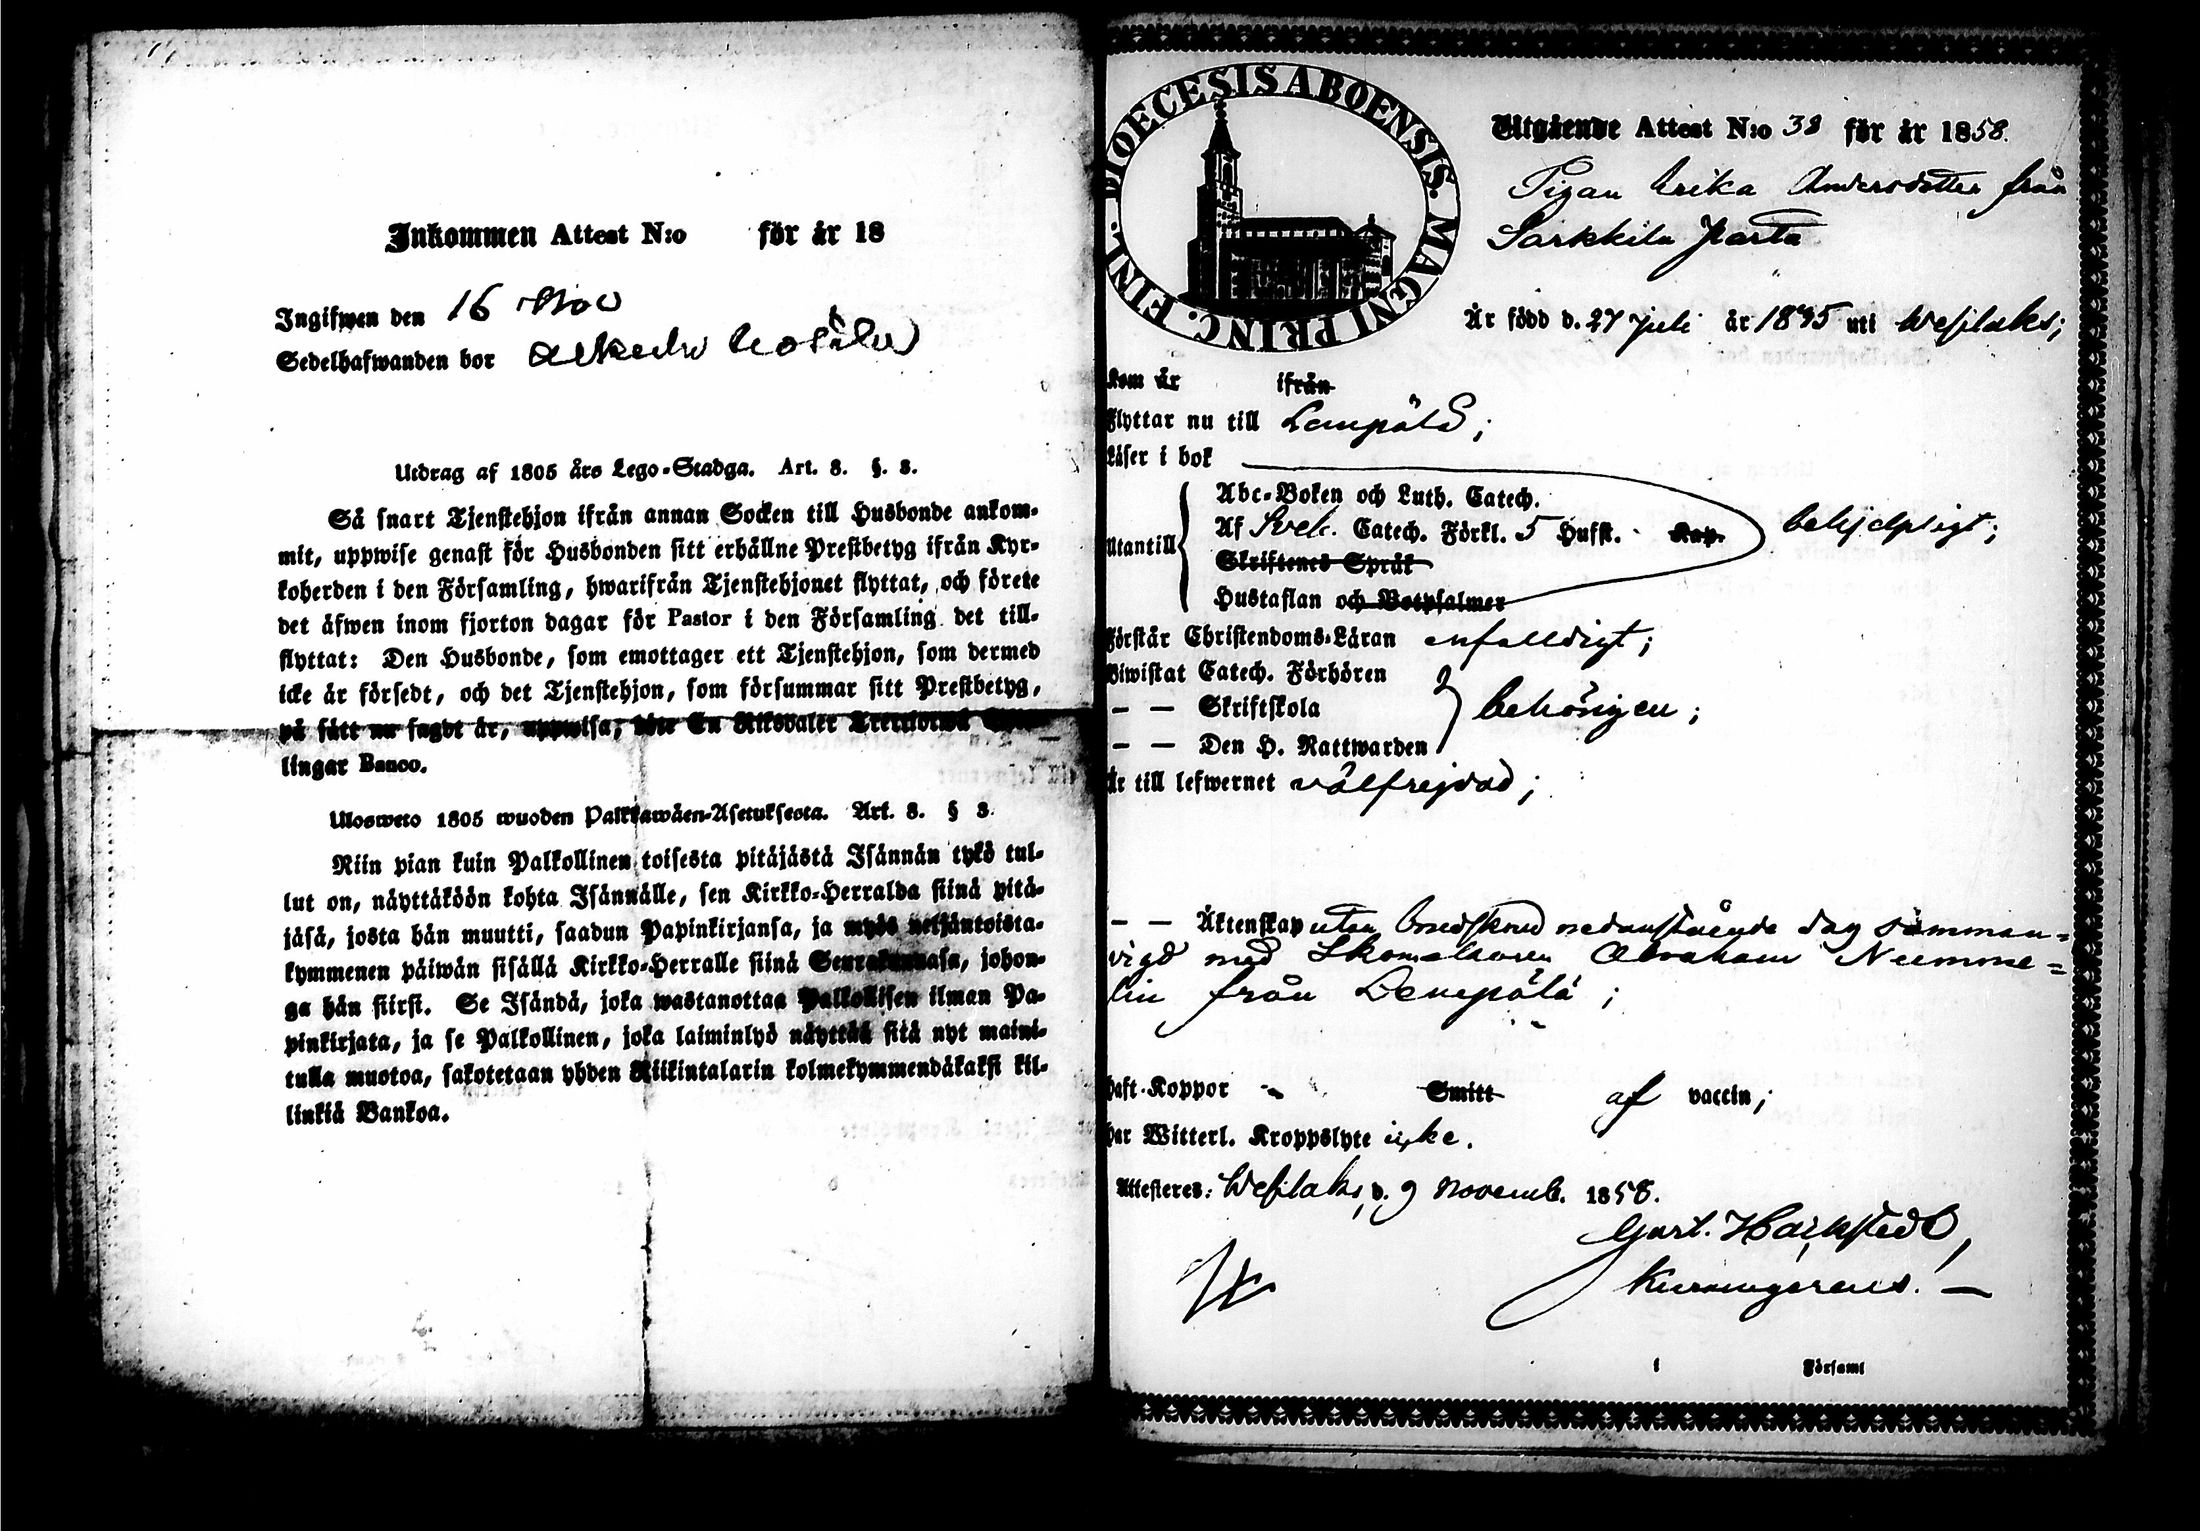 Inkommen Attest N:o för år 18
Ingifwen den 16 Nov
Sedelhafwanden bor
Utdrag af 1805 års Lego-Stadga. Art. 8. §. 3.
Så snart Tjenstehjon ifrån annan Socken till Husbonde ankom-
mit, uppwise genast för Husbonden sitt erhållne Prestbetyg ifrån Kyr-
koherden i den Församling, hwarifrån Tjenstehjonet flyttat, och förete
det äfwen inom fjorton dagar för Pastor i den Församling det till-
flyttat: Den Husbonde, som emottager ett Tjenstehjon, som dermed
icke är försedt, och det Tjenstehjon, som försummar sitt Prestbetyg,
på sätt nu sagdt är, uppwisa, böte En Riksdaler Trettiotwå
lingar Banco.
Ulosweto 1805 wuoden Palkkawäen-Asetuksesta. Art. 8. § 3.
Niin pian kuin Palkollinen toisesta pitäjästä Isännän tykö tul-
lut on, näyttäköön kohta Isännälle, sen Kirkko-Herralda siinä pitä-
jäsä, josta hän muutti, saadun Papinkirjansa, ja myös neljäntoista-
kymmenen päiwän sisällä Kirkko-Herralle siinä Seurakunnasa, johon-
ga hän siirsi. Se Isändä, joka wastanottaa Palkollisen ilman Pa-
pinkirjata, ja se Palkollinen, joka laiminlyö näyttää sitä nyt maini-
tulla muotoa, sakotetaan yhden Riikintalarin kolmekymmendäkaksi kil-
linkiä Bankoa.
DIOECESIS ABOENSIS. MAGNI PRINC. FINL.
Utgående Attest N:o 38 för år 1858.
Pigan Erika Andersdotter från
Sarkkila
Är född d. 27 Juli år 1835 uti Wesilaks;
Kom år ifrån
Flyttar nu till Lempälä;
Läser i bok
Abc-Boken och Luth. Catech.
Utantill Af Sveb. Catech. Förkl. 5 Hufst. Kap. behjelpligt;
Skriftenes Språk
Hustaflan och Botpsalmer
Förstår Christendoms-Läran enfaldigt;
Biwistat Catech. Förhören
— — Skriftskola behörigen;
— — Den H. Nattwarden
Är till lefwernet välfrejdad;
— — Äktenskap utan brudskrud nedanstående dag samman-
vigd med Skomakaren Abraham Numme-
lin från Lempälä;
haft Koppor Smitt af vaccin;
har Witterl. Kroppslyte icke.
Attesteres: Wesilaks, d. 9 Novemb. 1858.
Gust. Hacksted
i Församl